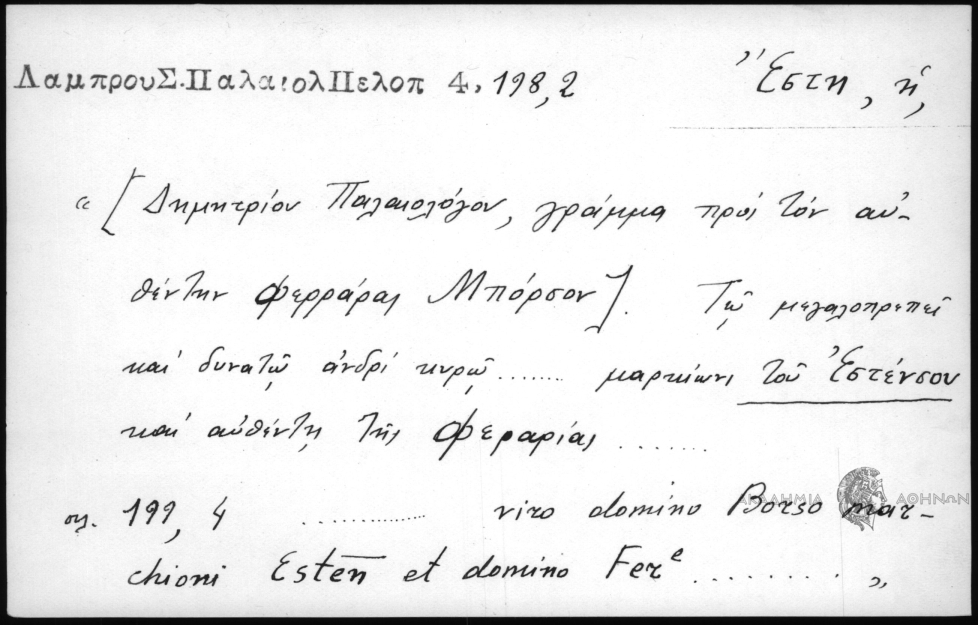 ΛαμπρουΣ.ΠαλαιολΠελοπ 4, 198,2 Ἔστη, ἡ,
“[Δημητρίου Παλαιολόγου, γράμμα πρὸς τὸν αὐ-
θέντην Φερράρας Μπόρσον]. Τῷ μεγαλοπρεπεῖ
καὶ δυνατῷ ἀνδρὶ κυρῷ ....... μαρκίωνι τοῦ Ἐστένσου
καὶ αὐθέντῃ τῆς Φεραρίας ........
σελ. 199, 4 ............... viro domino Borso mar-
ΑΚΑΔΗΜΙΑ ΑΘΗΝΩΝ
chioni Esten̅ et domino Ferᵉ .......... ”